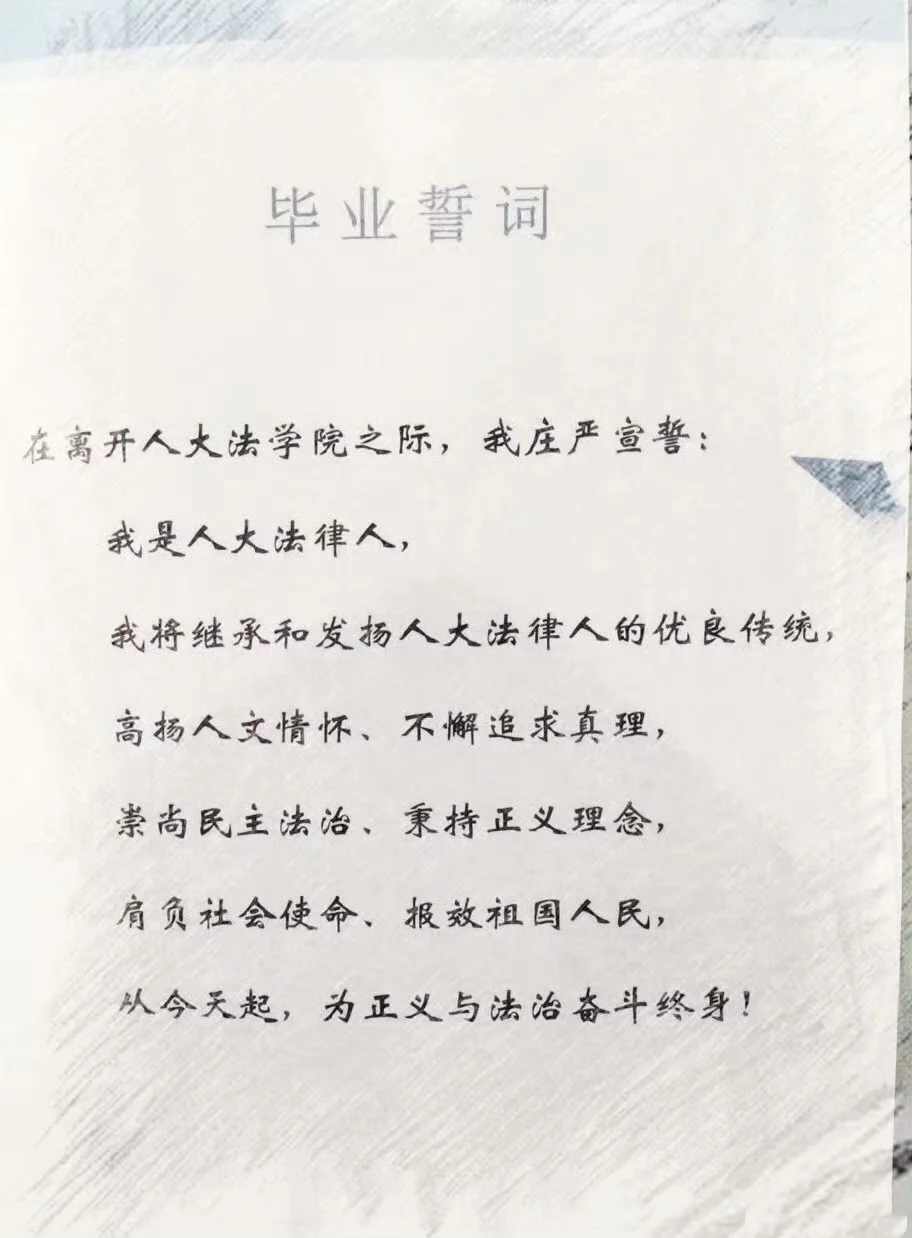 毕业誓词
在离开人大法学院之际，我庄严宣誓：
我是人大法律人，
我将继承和发扬人大法律人的优良传统，
高扬人文情怀、不懈追求真理，
崇尚民主法治、秉持正义理念，
肩负社会使命、报效祖国人民，
从今天起，为正义与法治奋斗终身！